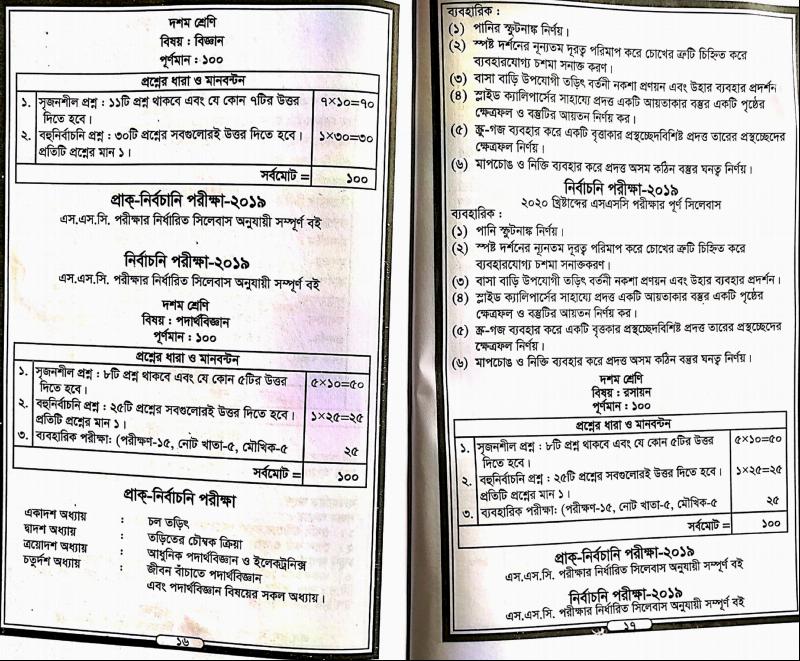 দশম শ্রেণি
বিষয় : বিজ্ঞান
পূর্ণমান : ১০০
প্রশ্নের ধারা ও মানবন্টন
১. সৃজনশীল প্রশ্ন : ১১টি প্রশ্ন থাকবে এবং যে কোন ৭টির উত্তর ৭×১০=৭০
দিতে হবে।
২. বহুনির্বাচনি প্রশ্ন : ৩০টি প্রশ্নের সবগুলোরই উত্তর দিতে হবে। ১×৩০=৩০
প্রতিটি প্রশ্নের মান ১।
সর্বমোট = ১০০
প্রাক্-নির্বচানি পরীক্ষা-২০১৯
এস.এস.সি. পরীক্ষার নির্ধারিত সিলেবাস অনুযায়ী সম্পূর্ণ বই
নির্বাচনি পরীক্ষা-২০১৯
এস.এস.সি. পরীক্ষার নির্ধারিত সিলেবাস অনুযায়ী সম্পূর্ণ বই
দশম শ্রেণি
বিষয় : পদার্থবিজ্ঞান
পূর্ণমান : ১০০
প্রশ্নের ধারা ও মানবন্টন
১. সৃজনশীল প্রশ্ন : ৮টি প্রশ্ন থাকবে এবং যে কোন ৫টির উত্তর ৫×১০=৫০
দিতে হবে।
২. বহুনির্বাচনি প্রশ্ন : ২৫টি প্রশ্নের সবগুলোরই উত্তর দিতে হবে। ১×২৫=২৫
প্রতিটি প্রশ্নের মান ১।
৩. ব্যবহারিক পরীক্ষা: (পরীক্ষণ-১৫, নোট খাতা-৫, মৌখিক-৫ ২৫
সর্বমোট = ১০০
প্রাক্-নির্বাচনি পরীক্ষা
একাদশ অধ্যায় : চল তড়িৎ
দ্বাদশ অধ্যায় : তড়িতের চৌম্বক ক্রিয়া
ত্রয়োদশ অধ্যায় : আধুনিক পদার্থবিজ্ঞান ও ইলেকট্রনিক্স
চতুর্দশ অধ্যায় : জীবন বাঁচাতে পদার্থবিজ্ঞান
এবং পদার্থবিজ্ঞান বিষয়ের সকল অধ্যায়।
১৬
ব্যবহারিক :
(১) পানির স্ফুটনাঙ্ক নির্ণয়।
(২) স্পষ্ট দর্শনের নূন্যতম দূরত্ব পরিমাপ করে চোখের ত্রুটি চিহ্নিত করে
ব্যবহারযোগ্য চশমা সনাক্ত করণ।
(৩) বাসা বাড়ি উপযোগী তড়িৎ বর্তনী নকশা প্রণয়ন এবং উহার ব্যবহার প্রদর্শন
(৪) স্লাইড ক্যালিপার্সের সাহায্যে প্রদত্ত একটি আয়তাকার বস্তুর একটি পৃষ্ঠের
ক্ষেত্রফল ও বস্তুটির আয়তন নির্ণয় কর।
(৫) স্ক্রু-গজ ব্যবহার করে একটি বৃত্তাকার প্রস্থচ্ছেদবিশিষ্ট প্রদত্ত তারের প্রস্থচ্ছেদের
ক্ষেত্রফল নির্ণয়।
(৬) মাপচোঙ ও নিক্তি ব্যবহার করে প্রদত্ত অসম কঠিন বস্তুর ঘনত্ব নির্ণয়।
নির্বাচনি পরীক্ষা-২০১৯
২০২০ খ্রিষ্টাব্দের এসএসসি পরীক্ষার পূর্ণ সিলেবাস
ব্যবহারিক :
(১) পানি স্ফুটনাঙ্ক নির্ণয়।
(২) স্পষ্ট দর্শনের ন্যূনতম দূরত্ব পরিমাপ করে চোখের ত্রুটি চিহ্নিত করে
ব্যবহারযোগ্য চশমা সনাক্তকরণ।
(৩) বাসা বাড়ি উপযোগী তড়িৎ বর্তনী নকশা প্রণয়ন এবং উহার ব্যবহার প্রদর্শন।
(৪) স্লাইড ক্যালিপার্সের সাহায্যে প্রদত্ত একটি আয়তাকার বস্তুর একটি পৃষ্ঠের
ক্ষেত্রফল ও বস্তুটির আয়তন নির্ণয় কর।
(৫) স্ক্রু-গজ ব্যবহার করে একটি বৃত্তকার প্রস্থচ্ছেদবিশিষ্ট প্রদত্ত তারের প্রস্থচ্ছেদের
ক্ষেত্রফল নির্ণয়।
(৬) মাপচোঙ ও নিক্তি ব্যবহার করে প্রদত্ত অসম কঠিন বস্তুর ঘনত্ব নির্ণয়।
দশম শ্রেণি
বিষয় : রসায়ন
পূর্ণমান : ১০০
প্রশ্নের ধারা ও মানবন্টন
১. সৃজনশীল প্রশ্ন : ৮টি প্রশ্ন থাকবে এবং যে কোন ৫টির উত্তর ৫×১০=৫০
দিতে হবে।
২. বহুনির্বাচনি প্রশ্ন : ২৫টি প্রশ্নের সবগুলোরই উত্তর দিতে হবে। ১×২৫=২৫
প্রতিটি প্রশ্নের মান ১।
৩. ব্যবহারিক পরীক্ষা: (পরীক্ষণ-১৫, নোট খাতা-৫, মৌখিক-৫ ২৫
সর্বমোট = ১০০
প্রাক্-নির্বাচনি পরীক্ষা-২০১৯
এস.এস.সি. পরীক্ষার নির্ধারিত সিলেবাস অনুযায়ী সম্পূর্ণ বই
নির্বাচনি পরীক্ষা-২০১৯
এস.এস.সি. পরীক্ষার নির্ধারিত সিলেবাস অনুযায়ী সম্পূর্ণ বই
১৭